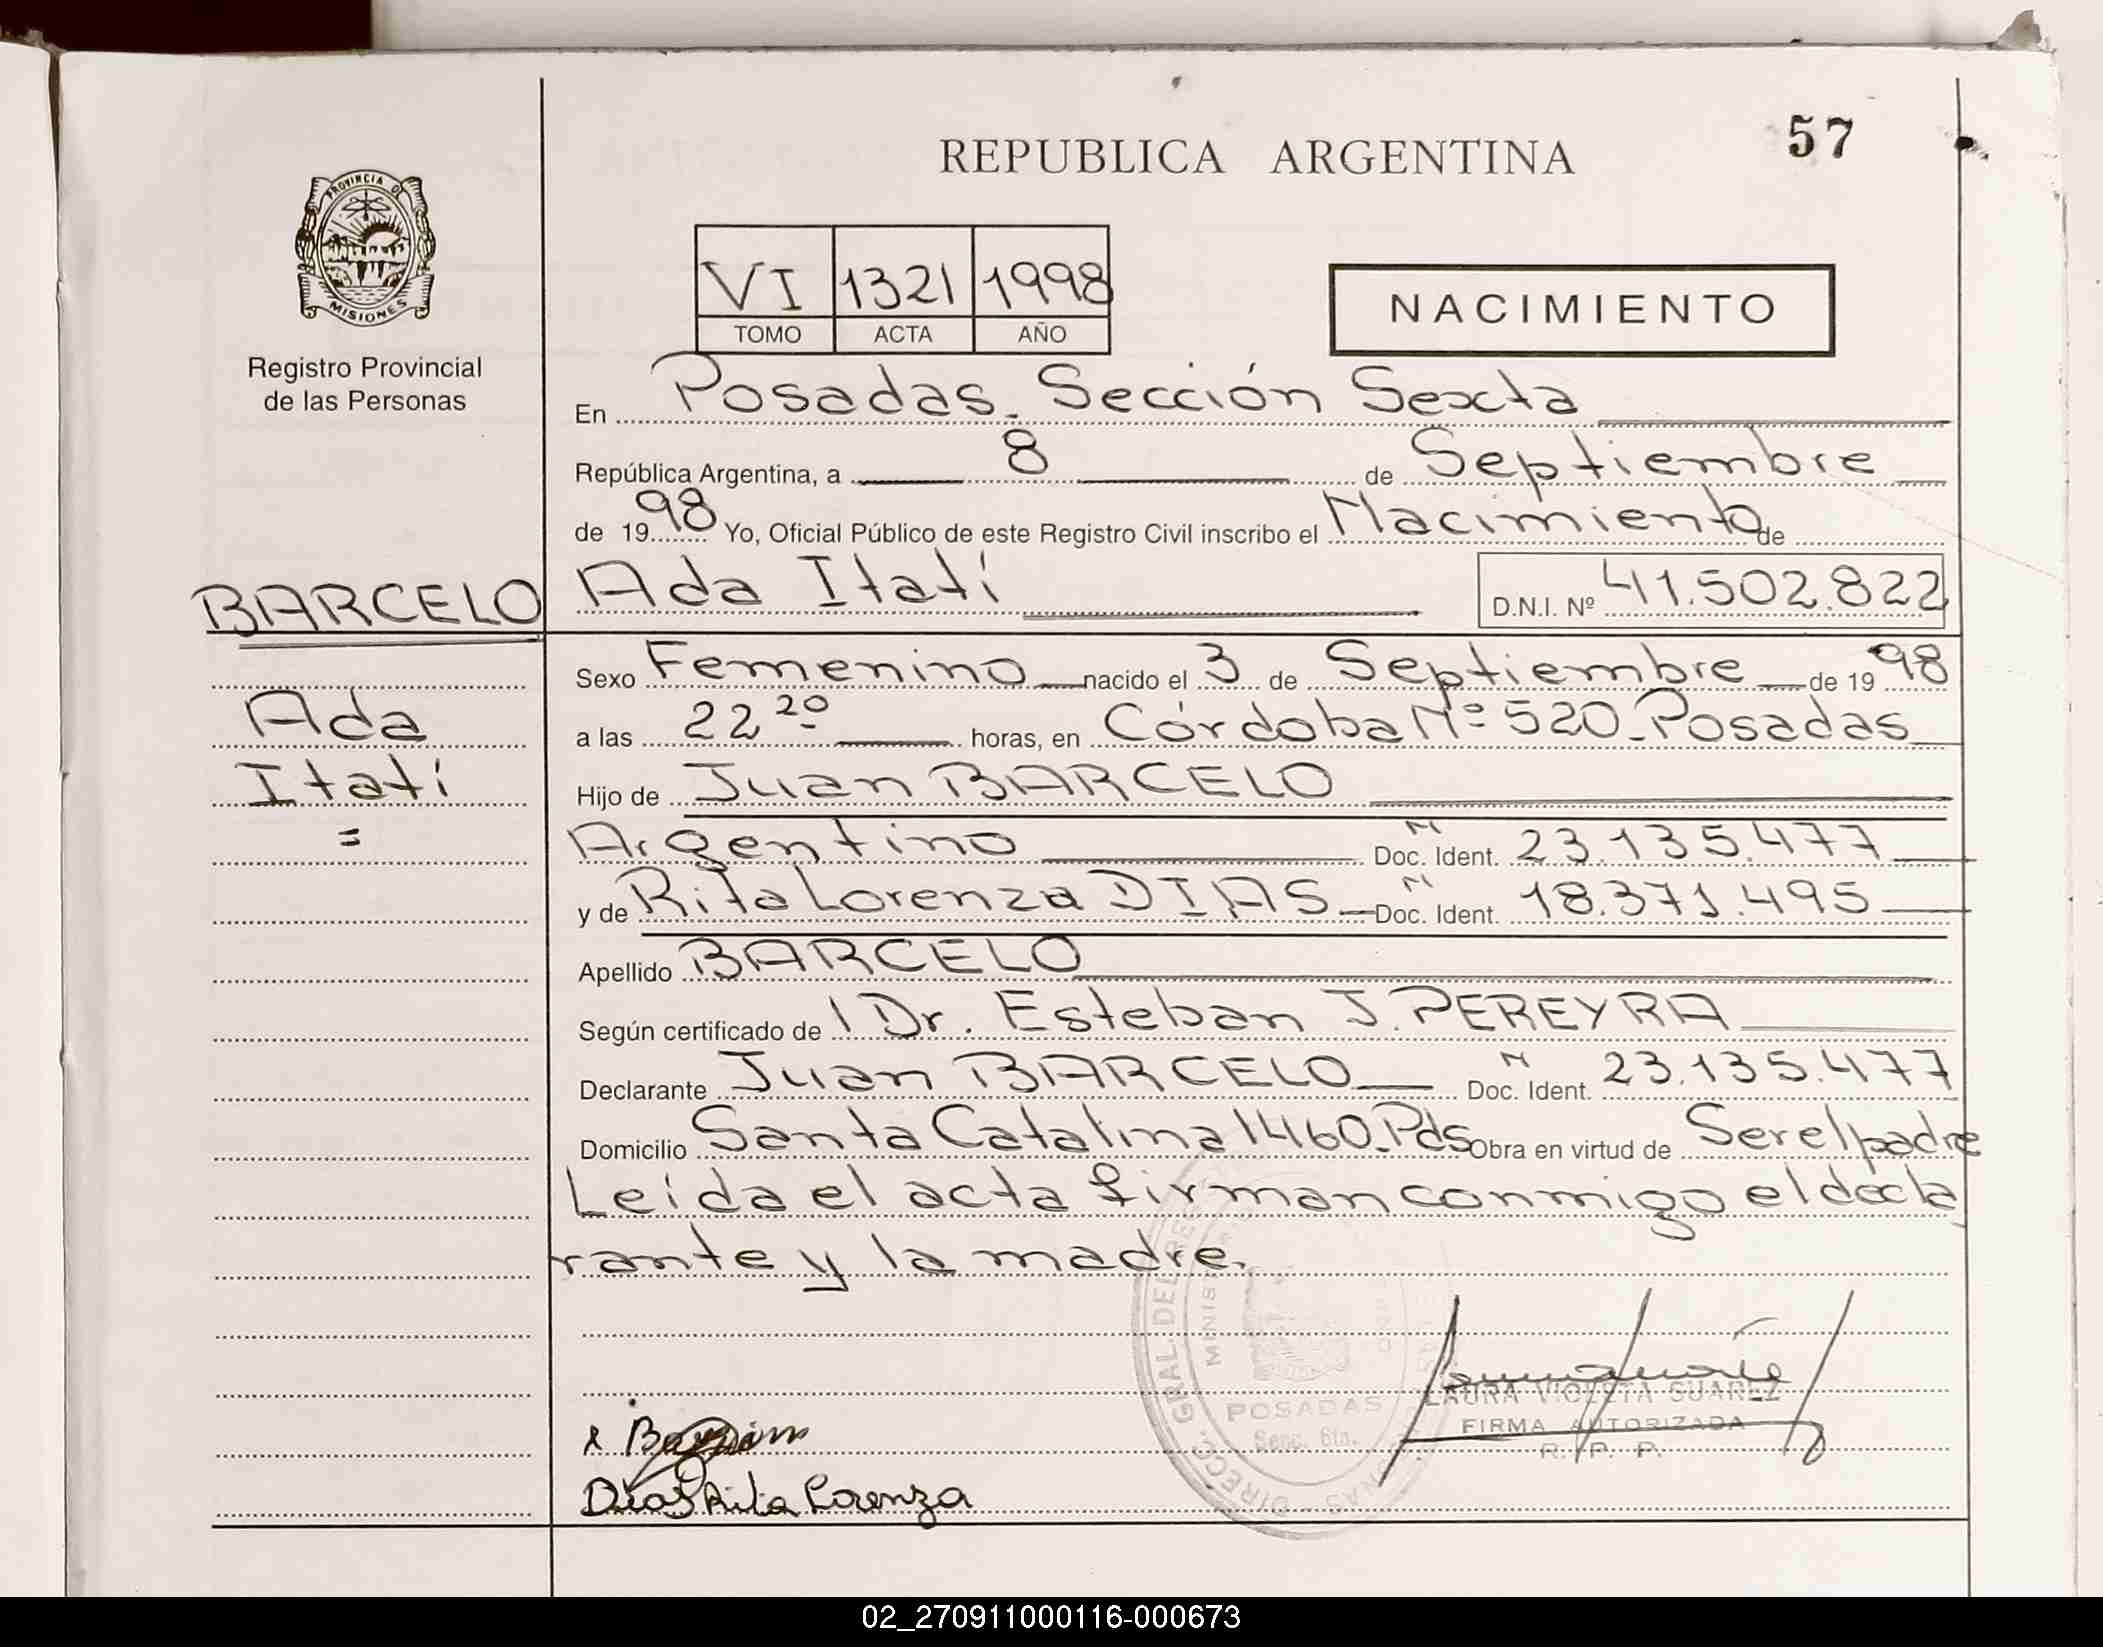 57
REPUBLICA ARGENTINA
PROVINCIA DE
MISIONES
Registro Provincial
de las Personas
VI 1321 1998
TOMO ACTA AÑO
NACIMIENTO
En Posadas. Sección Sexta
República Argentina, a 8 de Septiembre
de 1998 Yo, Oficial Público de este Registro Civil inscribo el Nacimiento de
BARCELO Ada Itatí D.N.I. Nº 41.502.822
Ada
Itatí
=
Sexo Femenino nacido el 3 de Septiembre de 1998
a las 22 20 horas, en Córdoba Nº 520 - Posadas
Hijo de Juan BARCELO
Argentino N Doc. Ident. 23.135.477
y de Rita Lorenza DIAS N Doc. Ident. 18.371.495
Apellido BARCELO
Según certificado de 1 Dr. Esteban J. PEREYRA
Declarante Juan BARCELO N Doc. Ident. 23.135.477
Domicilio Santa Catalina 1460. Pds Obra en virtud de Ser el padre
Leída el acta firman conmigo el decla
rante y la madre.
DIRECC. GRAL. DEL
POSADAS
Secc. 6ta.
LAURA VIOLETA SUAREZ
FIRMA AUTORIZADA
R. P. P.
Dias Rita Lorenza
02_270911000116-000673